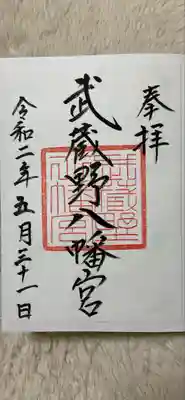 奉拝
武蔵野八幡宮
令和二年五月三十一日